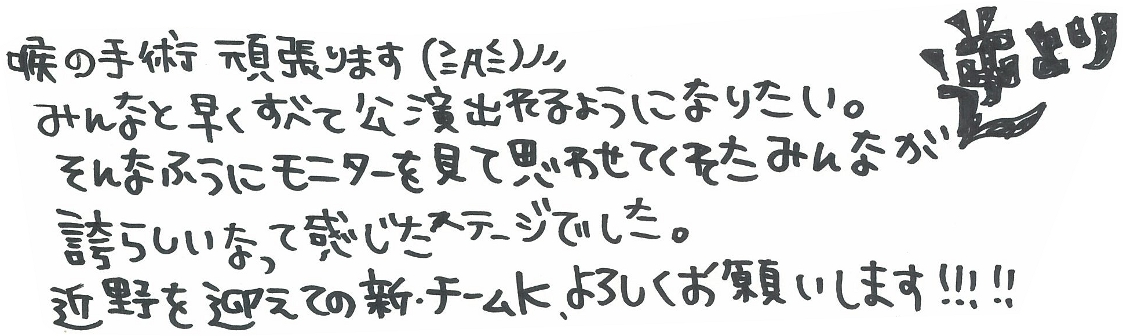 喉の手術 頑張ります(≧Д≦)ノノノ
みんなと早くすべて公演出れるようになりたい。
そんなふうにモニターを見て思わせてくれたみんなが
誇らしいなって感じたステージでした。
近野を迎えての新・チームK、よろしくお願いします!!!!!